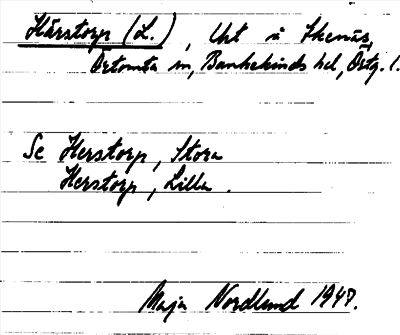 Härstorp (L.), Uht u Skenäs,
Örtomta sn, Bankekinds hd, Östg. l.
Se Herstorp, Stora
Herstorp, Lilla.
Maja Nordlund 1947.